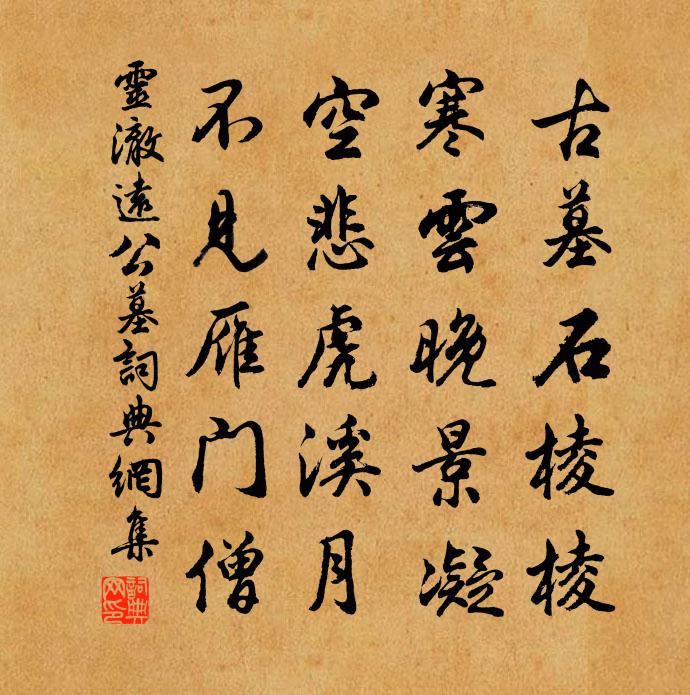 古墓石棱棱
寒雲晚景凝
空悲虎溪月
不見雁门僧
靈澈遠公墓詞典網集
詞典网印